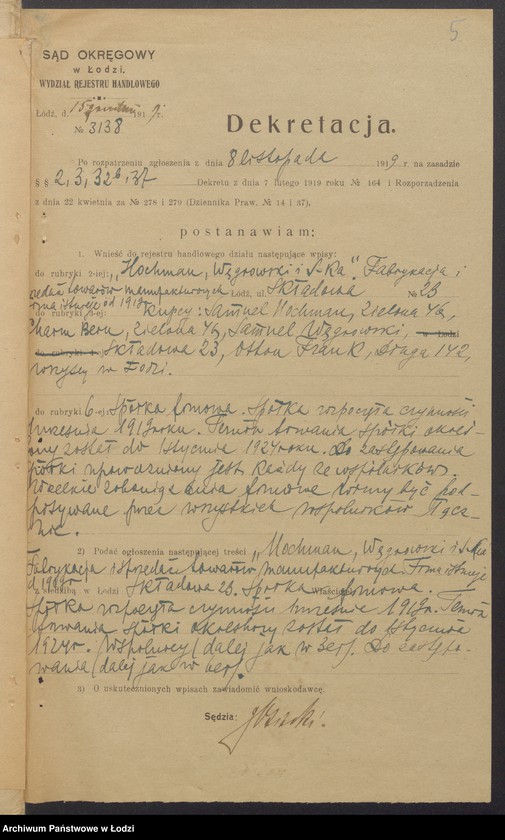 5
SĄD OKRĘGOWY
w Łodzi.
WYDZIAŁ REJESTRU HANDLOWEGO
Łódź, d. 15 grudnia 1919 r.
№ 3138
Dekretacja.
Po rozpatrzeniu zgłoszenia z dnia 8 listopada 1919 r na zasadzie
§ § 2, 3, 32b, 37 Dekretu z dnia 7 lutego 1919 roku № 164 i Rozporządzenia
z dnia 22 kwietnia za № 278 i 279 (Dziennika Praw. № 14 i 37),
postanawiam:
1. Wnieść do rejestru handlowego działu następujące wpisy:
do rubryki 2-iej: "Hochman, Wzgrowski i S-ka". Fabrykacja i
sprzedaż towarów manufakturowych Łódź, ul. Składowa № 23
firma istnieje od 1919 r.
do rubryki 3-ej: kupcy: Samuel Hochman, Zielona 46,
Bern, Zielona 46, Samuel Wzgrowski, w Łodzi
do rubryki Składowa 23, Otton Frank, Długa 142,
wszyscy w Łodzi.
do rubryki 6-ej: Spółka firmowa. Spółka rozpoczęła czynności
września 1919 roku. Termin trwania spółki określony
został do 1 stycznia 1924 roku. Do zastępowania
spółki upoważniony jest każdy ze wspólników.
Wszelkie zobowiązania firmowe winny być podpisywane
przez wszystkich wspólników łącznie.
2) Podać ogłoszenia następującej treści "Hochman, Wzgrowski i S-ka
Fabrykacja i sprzedaż towarów manufakturowych. Firma istnieje
od 1919 r.
z siedzibą w Łodzi Składowa 23. Spółka firmowa. Właściciel
Spółka rozpoczęła czynności września 1919 r. Termin
trwania spółki określony został do 1 stycznia
1924 r. Wspólnicy (dalej jak w 3ej). Do zastępowania
(dalej jak w 6ej).
3) O uskutecznionych wpisach zawiadomić wnioskodawcę.
Sędzia:
Archiwum Państwowe w Łodzi